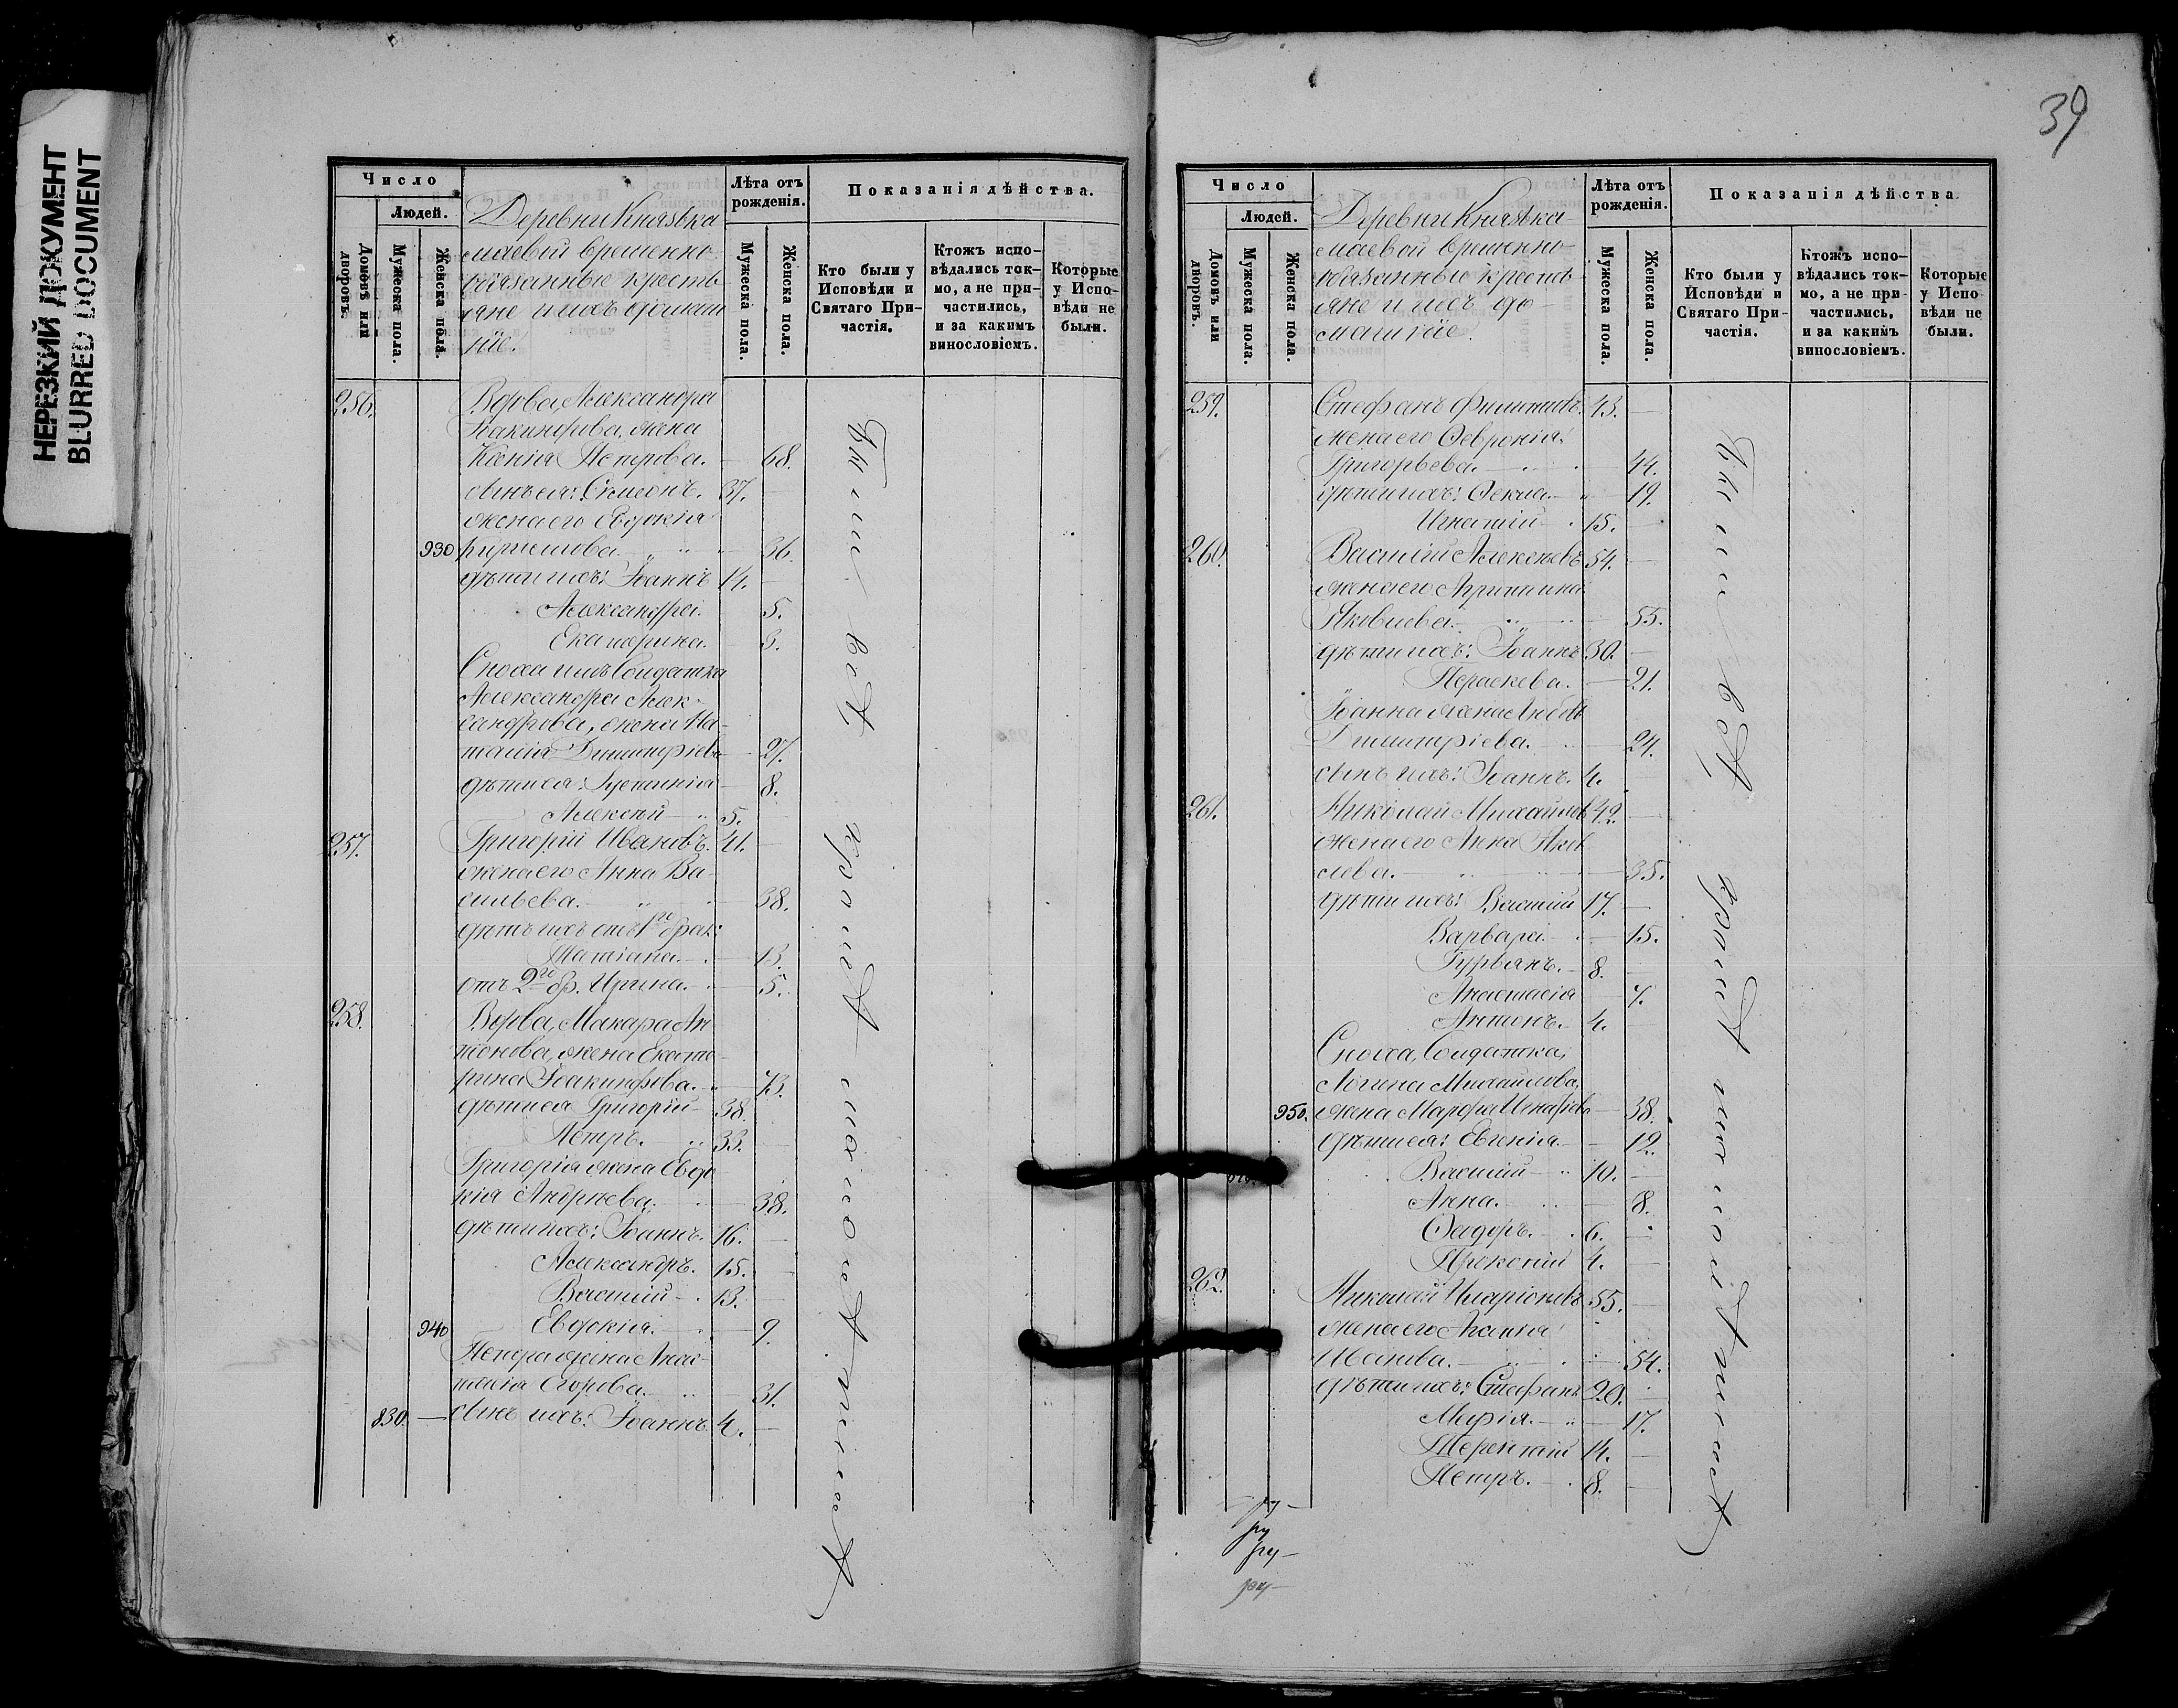 НЕРЕЗКИЙ ДОКУМЕНТ
BLURRED DOCUMENT
Число
Людей.
Домовъ или дворовъ.
Мужеска пола.
Женска пола.
Деревни Князька
маевой временно-
обязанные кресть-
яне и ихъ домаш
ніе.
Лѣта отъ
рожденія.
Мужеска пола.
Женска пола.
Показанія дѣйства.
Кто были у
Исповѣди и
Святаго При-
частія.
Ктожъ испо-
вѣдались ток-
мо, а не при-
частились,
и за какимъ
винословіемъ.
Которые
у Испо-
вѣди не
были.
256. Вдова, Александра
Іоакинфова, жена
Ксенія Петрова. 68.
сынъ ея: Симеонъ. 37.
жена его Евдокія
930 Кириллова. 36.
дѣти ихъ: Іоаннъ 14.
Александра. 5.
Екатерина. 3.
Сноха ихъ Солдатка
Александра Алек-
сандрова, жена На-
талія Димитріева 27.
дѣти ея: Іустинія 8.
Алексѣй 5.
257. Григорій Ивановъ. 41.
жена его Анна Ва-
сильева. 38.
дѣти ихъ отъ 1го брак:
Татіана. 13.
отъ 2го бр. Ирина. 5.
258. Вдова, Макара Ан
тонова, жена Екате-
рина Іоакинфова. 73.
дѣти ея Григорій 38.
Петръ. 33.
Григорія жена Евдо
кія Андреева. 38.
дѣти ихъ: Іоаннъ. 16.
Александръ. 15.
Василій 13.
940 Евдокія. 9.
Петра жена Анас-
тасія Егорова. 31.
830. сынъ ихъ: Іоаннъ. 4.
Были
39
Число
Людей.
Домовъ или дворовъ.
Мужеска пола.
Женска пола.
Деревни Князька-
маевой временно-
обязанные кресть
яне и ихъ до-
машніе.
Лѣта отъ
рожденія.
Мужеска пола.
Женска пола.
Показанія дѣйства.
Кто были у
Исповѣди и
Святаго При-
частія.
Ктожъ испо-
вѣдались ток-
мо, а не при-
частились,
и за какимъ
винословіемъ.
Которые
у Испо-
вѣди не
были.
259. Стефанъ Филиповъ. 43.
жена его Февронія
Григорьева. 44.
дѣти ихъ: Ѳекла 19.
Игнатій 15.
260. Василій Алексѣевъ 54.
жена его Агрипина
Яковлева. 55.
дѣти ихъ: Іоаннъ 30.
Параскева. 21.
Іоанна жена Любовь
Димитріева. 24.
сынъ ихъ: Іоаннъ. 4.
261. Николай Михайловъ 42.
жена его Анна Яков
лева. 35.
дѣти ихъ: Василій 17.
Варвара. 15.
Гурьянъ. 8.
Анастасія 7.
Антонъ. 4.
Сноха, Солдатка,
Логина Михайлова,
950. жена Марфа 38.
дѣти ея: Евгенія. 12.
Василій 10.
Анна. 8.
Ѳеодоръ. 6.
Прокопій 4.
262. Николай Иларіоновъ 55.
жена его Агапія
Иванова. 54.
дѣти ихъ: Стефанъ 20.
Марія. 17.
Терентій 14.
Петръ. 8.
Были